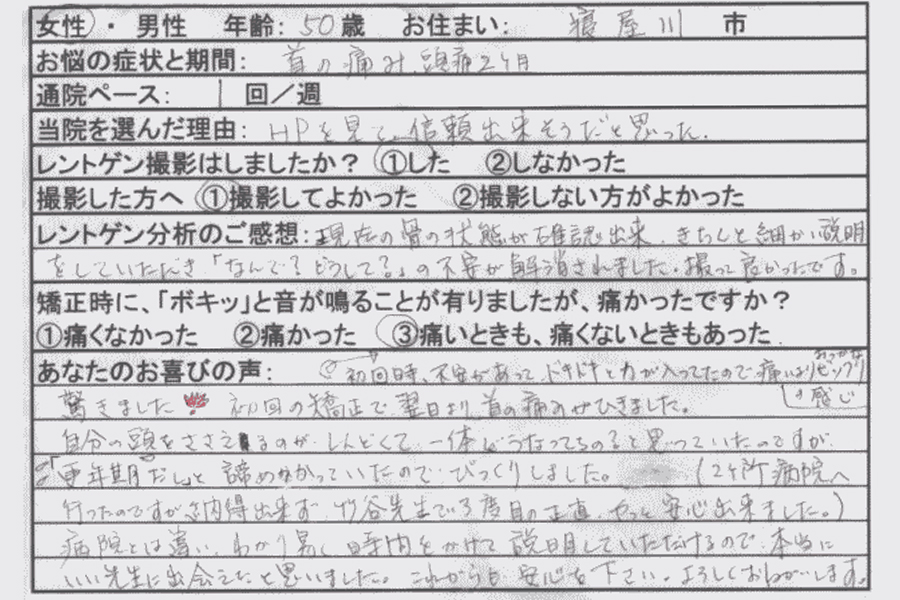 女性 ・ 男性 年齢: 50 歳 お住まい: 寝屋川 市
お悩の症状と期間: 首の痛み、頭痛2ヶ月
通院ペース: 1 回／週
当院を選んだ理由: HPを見て、信頼出来そうだと思った。
レントゲン撮影はしましたか？ ①した ②しなかった
撮影した方へ ①撮影してよかった ②撮影しない方がよかった
レントゲン分析のご感想: 現在の骨の状態が確認出来、きちんと細かい説明
をしていただき「なんで？どうして？」の不安が解消されました。撮って良かったです。
矯正時に、「ボキッ」と音が鳴ることが有りましたが、痛かったですか？
①痛くなかった ②痛かった ③痛いときも、痛くないときもあった
あなたのお喜びの声: 初回時、不安があって、ドキドキと力が入ってたので痛いよりビックリ
の感じ
驚きました 初回の矯正で翌日より、首の痛みがひきました。
自分の頭をささえるのが、しんどくて、一体どうなってるの？と思っていたのですが
「更年期だし」と諦めかかっていたので、びっくりしました。 (2ヶ所病院へ
行ったのですが納得出来ず、竹谷先生で3度目の正直、やっと安心出来ました。)
病院とは違い、わかり易く時間をかけて説明していただけるので、本当に
いい先生に出会えたと思いました。これからも安心を下さい。よろしくおねがいします。